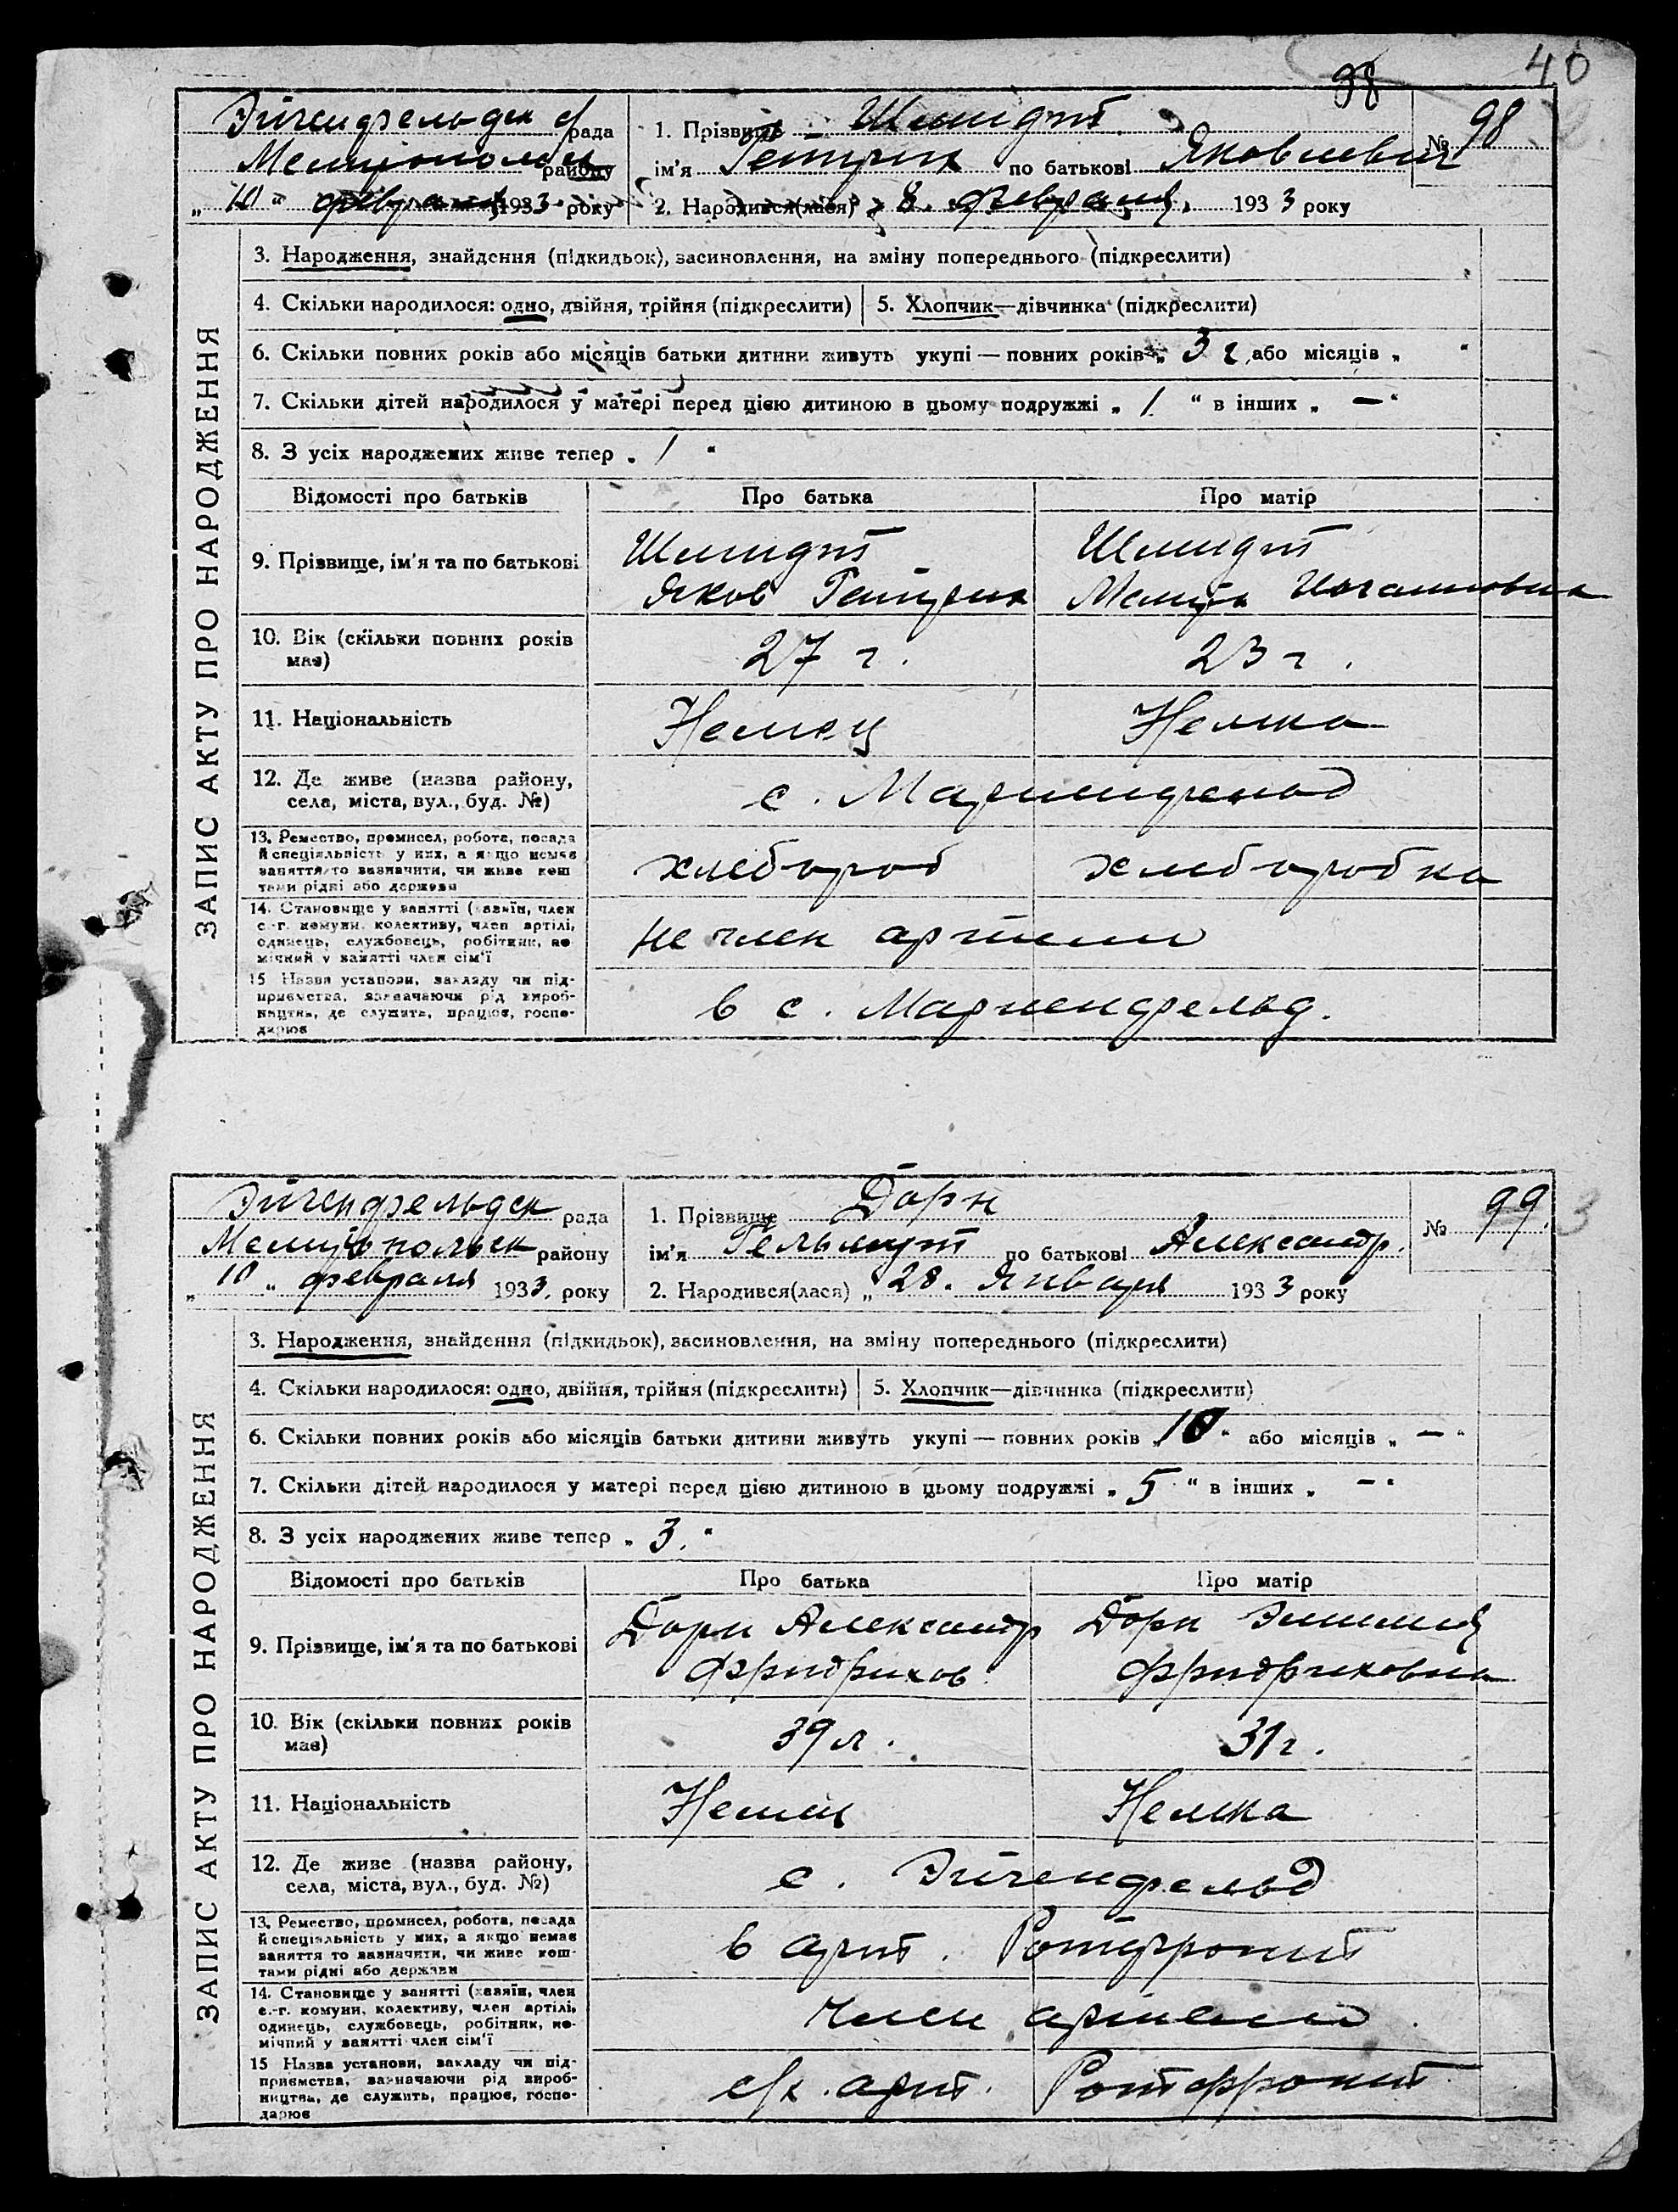 40
38
Эйгенфельдск с/рада
Мелитопольск району
„ 10 “ февраля 1933 року
1. Прізвище Шмидт
№ 98
ім'я Гейнрих по батькові Яковлевич
2. Народився(лася) „ 8. февраля 1933 року
ЗАПИС АКТУ ПРО НАРОДЖЕННЯ
3. Народження, знайдення (підкидьок), засиновлення, на зміну попереднього (підкреслити)
4. Скільки народилося: одно, двійня, трійня (підкреслити)
5. Хлопчик—дівчинка (підкреслити)
6. Скільки повних років або місяців батьки дитини живуть укупі — повних років „ 3 г. або місяців „ “
7. Скільки дітей народилося у матері перед цією дитиною в цьому подружжі „ 1 “ в інших „ — “
8. З усіх народжених живе тепер „ 1 “
Відомості про батьків
Про батька
Про матір
9. Прізвище, ім'я та по батькові
Шмидт
Яков Гейнрих
Шмидт
10. Вік (скільки повних років
має)
27 г.
23 г.
11. Національність
Немец
Немка
12. Де живе (назва району,
села, міста, вул., буд. №)
с. Мариинфельд
13. Ремество, промисел, робота, посада
й спеціяльність у них, а якщо немає
заняття то зазначити, чи живе кош
тами рідні або держави
хлебороб
хлеборобка
14. Становище у занятті (хазяїн, член
с.-г. комуни, колективу, член артілі,
одинець, службовець, робітник, по-
мічний у занятті член сім'ї
не член артели
15 Назва установи, закладу чи під-
приємства, зазначаючи рід вироб-
ництва, де служить, працює, госпо-
дарює
в с. Мариенфельд.
Эйгенфельдск рада
Мелитопольск району
„ 10 „ февраля 1933. року
1. Прізвище Дорн
№ 99.
ім'я Гельмут по батькові Александр.
2. Народився(лася) „ 28. Января 1933 року
ЗАПИС АКТУ ПРО НАРОДЖЕННЯ
3. Народження, знайдення (підкидьок), засиновлення, на зміну попереднього (підкреслити)
4. Скільки народилося: одно, двійня, трійня (підкреслити)
5. Хлопчик—дівчинка (підкреслити)
6. Скільки повних років або місяців батьки дитини живуть укупі — повних років „ 10 “ або місяців „ — “
7. Скільки дітей народилося у матері перед цією дитиною в цьому подружжі „ 5 “ в інших „ — “
8. З усіх народжених живе тепер „ 3. “
Відомості про батьків
Про батька
Про матір
9. Прізвище, ім'я та по батькові
Дорн Александр
Фридрихов
Дорн Эмилия
Фридриховна
10. Вік (скільки повних років
має)
39 л.
31 г.
11. Національність
Немец
Немка
12. Де живе (назва району,
села, міста, вул., буд. №)
с. Эйгенфельд
13. Ремество, промисел, робота, посада
й спеціяльність у них, а якщо немає
заняття то зазначити, чи живе кош-
тами рідні або держави
в арт. Ротфронт
14. Становище у занятті (хазяїн, член
с.-г. комуни, колективу, член артілі,
одинець, службовець, робітник, по-
мічний у занятті член сім'ї
член артели
15 Назва установи, закладу чи під-
приємства, зазначаючи рід вироб-
ництва, де служить, працює, госпо-
дарює
с/х. арт. Ротфронт